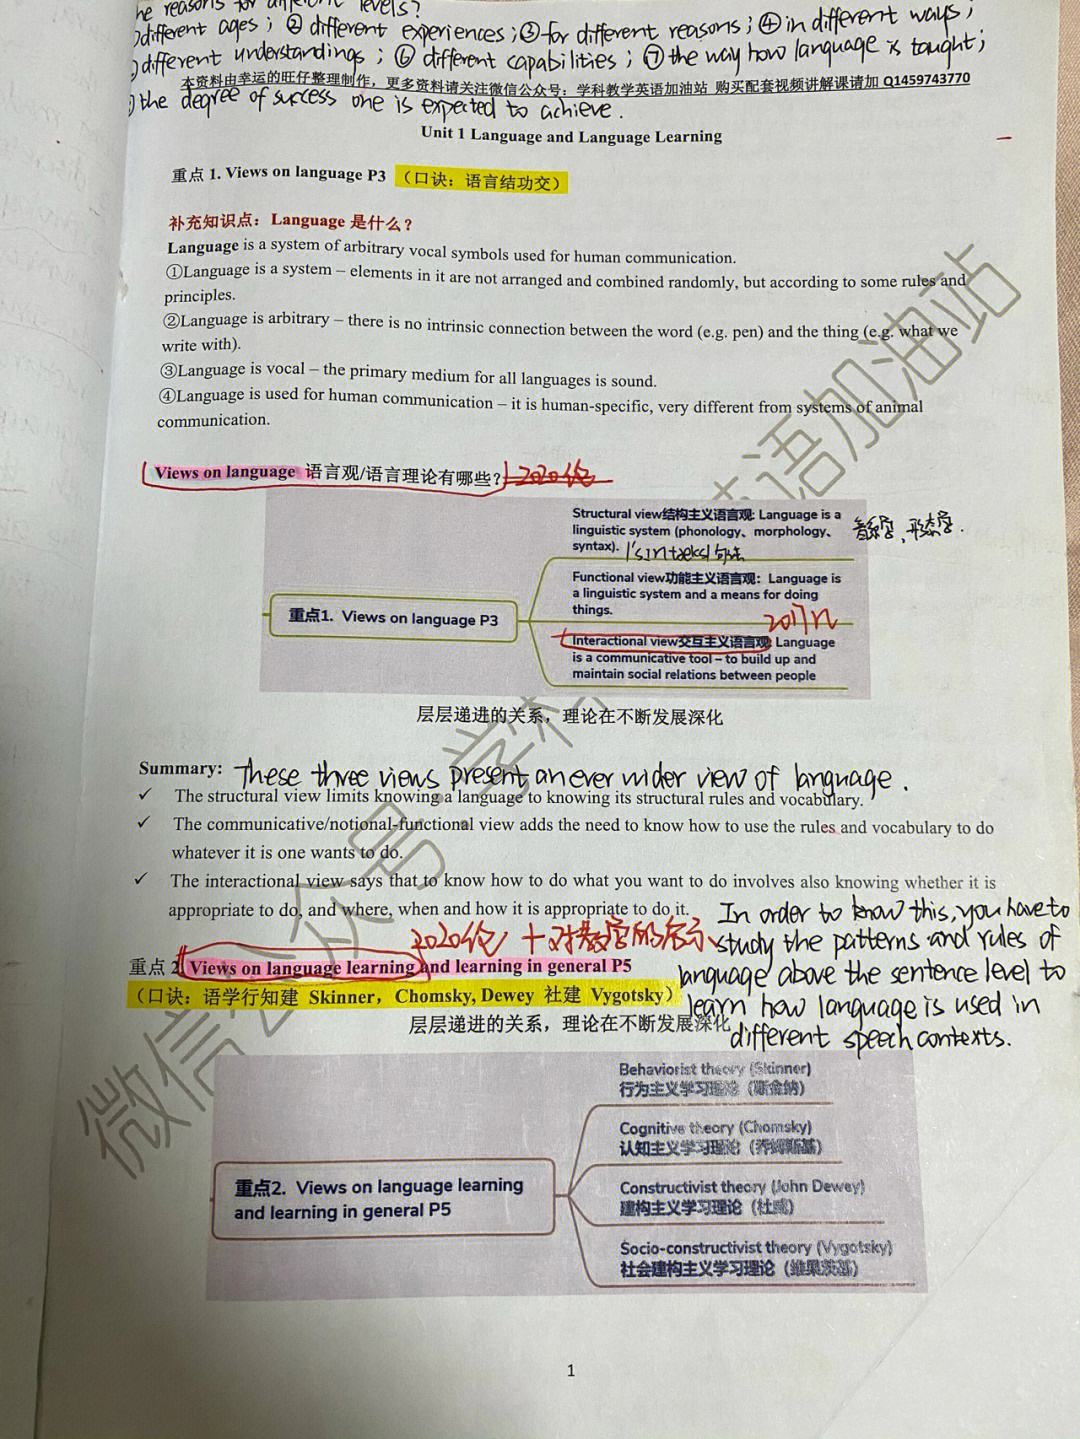 he reasons for different levels?
different ages; ② different experiences; ③ for different reasons; ④ in different ways;
different understandings; ⑥ different capabilities; ⑦ the way how language is taught;
本资料由幸运的旺仔整理制作，更多资料请关注微信公众号：学科教学英语加油站 购买配套视频讲解课请加 Q1459743770
the degree of success one is expected to achieve.
Unit 1 Language and Language Learning
重点 1. Views on language P3 （口诀：语言结功交）
补充知识点：Language 是什么？
Language is a system of arbitrary vocal symbols used for human communication.
①Language is a system – elements in it are not arranged and combined randomly, but according to some rules and
principles.
②Language is arbitrary – there is no intrinsic connection between the word (e.g. pen) and the thing (e.g. what we
write with).
③Language is vocal – the primary medium for all languages is sound.
④Language is used for human communication – it is human-specific, very different from systems of animal
communication.
Views on language 语言观/语言理论有哪些? 2020论
Structural view结构主义语言观: Language is a
linguistic system (phonology、morphology、
syntax). 句法
音系学、形态学.
Functional view功能主义语言观：Language is
a linguistic system and a means for doing
things.
2017
重点1. Views on language P3
Interactional view交互主义语言观: Language
is a communicative tool – to build up and
maintain social relations between people
层层递进的关系，理论在不断发展深化
Summary: These three views present an ever wider view of language.
✓ The structural view limits knowing a language to knowing its structural rules and vocabulary.
✓ The communicative/notional-functional view adds the need to know how to use the rules and vocabulary to do
whatever it is one wants to do.
✓ The interactional view says that to know how to do what you want to do involves also knowing whether it is
appropriate to do, and where, when and how it is appropriate to do it.
In order to know this, you have to
study the patterns and rules of
language above the sentence level to
learn how language is used in
different speech contexts.
2020论 + 对教学的启示
重点 2 Views on language learning and learning in general P5
（口诀：语学行知建 Skinner，Chomsky, Dewey 社建 Vygotsky）
层层递进的关系，理论在不断发展深化
Behaviorist theory (Skinner)
行为主义学习理论（斯金纳）
Cognitive theory (Chomsky)
认知主义学习理论（乔姆斯基）
重点2. Views on language learning
and learning in general P5
Constructivist theory (John Dewey)
建构主义学习理论（杜威）
Socio-constructivist theory (Vygotsky)
社会建构主义学习理论（维果茨基）
1
微信公众号：学科英语加油站